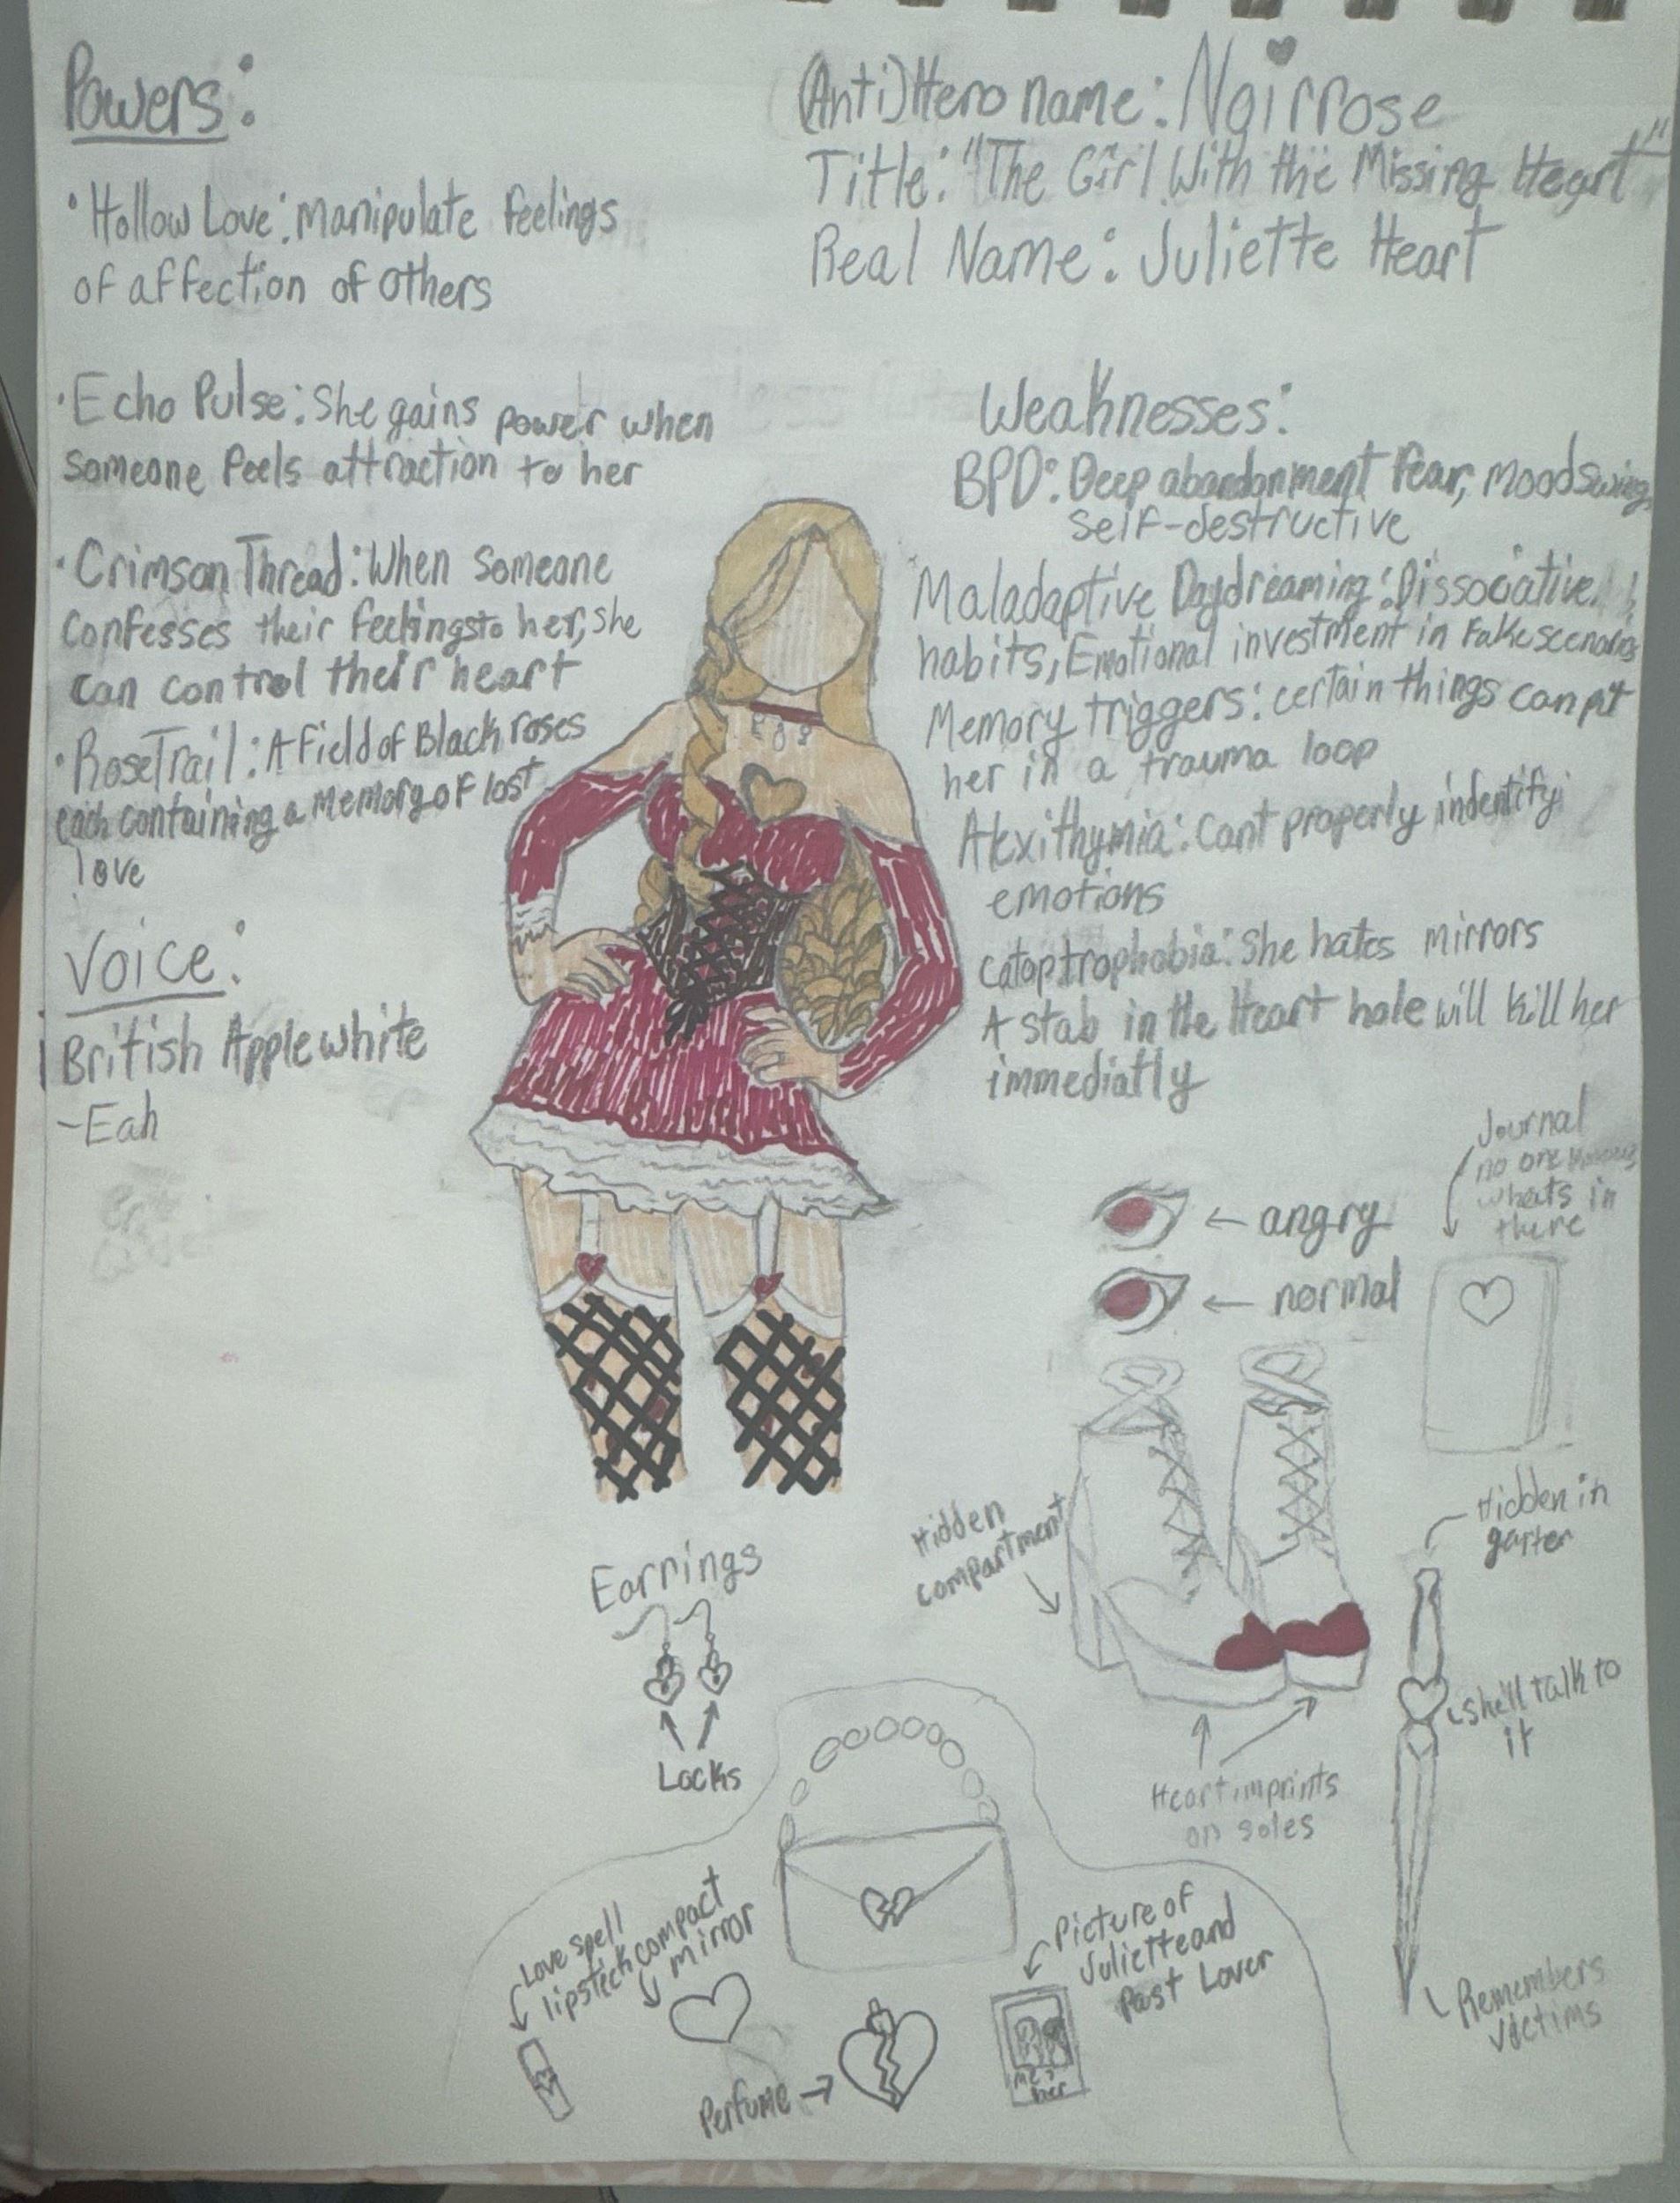 Powers:
• Hollow Love: Manipulate feelings
of affection of others
• Echo Pulse: She gains power when
someone feels attraction to her
• Crimson Thread: When someone
confesses their feelings to her, she
can control their heart
• Rose Trail: A field of Black roses
each containing a memory of lost
love
Voice:
British Apple white
-Eah
(Anti)Hero name: Noirrose
Title: "The Girl With the Missing Heart"
Real Name: Juliette Heart
Weaknesses:
BPD: Deep abandonment fear, Mood swing,
self-destructive
Maladaptive Daydreaming: Dissociative
habits, Emotional investment in Fake scenarios
Memory triggers: certain things can put
her in a trauma loop
Alexithymia: Cant properly indentify
emotions
Catoptrophobia: She hates mirrors
A stab in the Heart hole will kill her
immediatly
Journal
no one knows
whats in
there
← angry
← normal
Hidden
compartment
Hidden in
garter
she'll talk to
it
Remembers
victims
Heart imprints
on soles
Earrings
Locks
Love spell
lipstick
compact
mirror
Perfume →
Picture of
Juliette and
Past Lover
me &
her